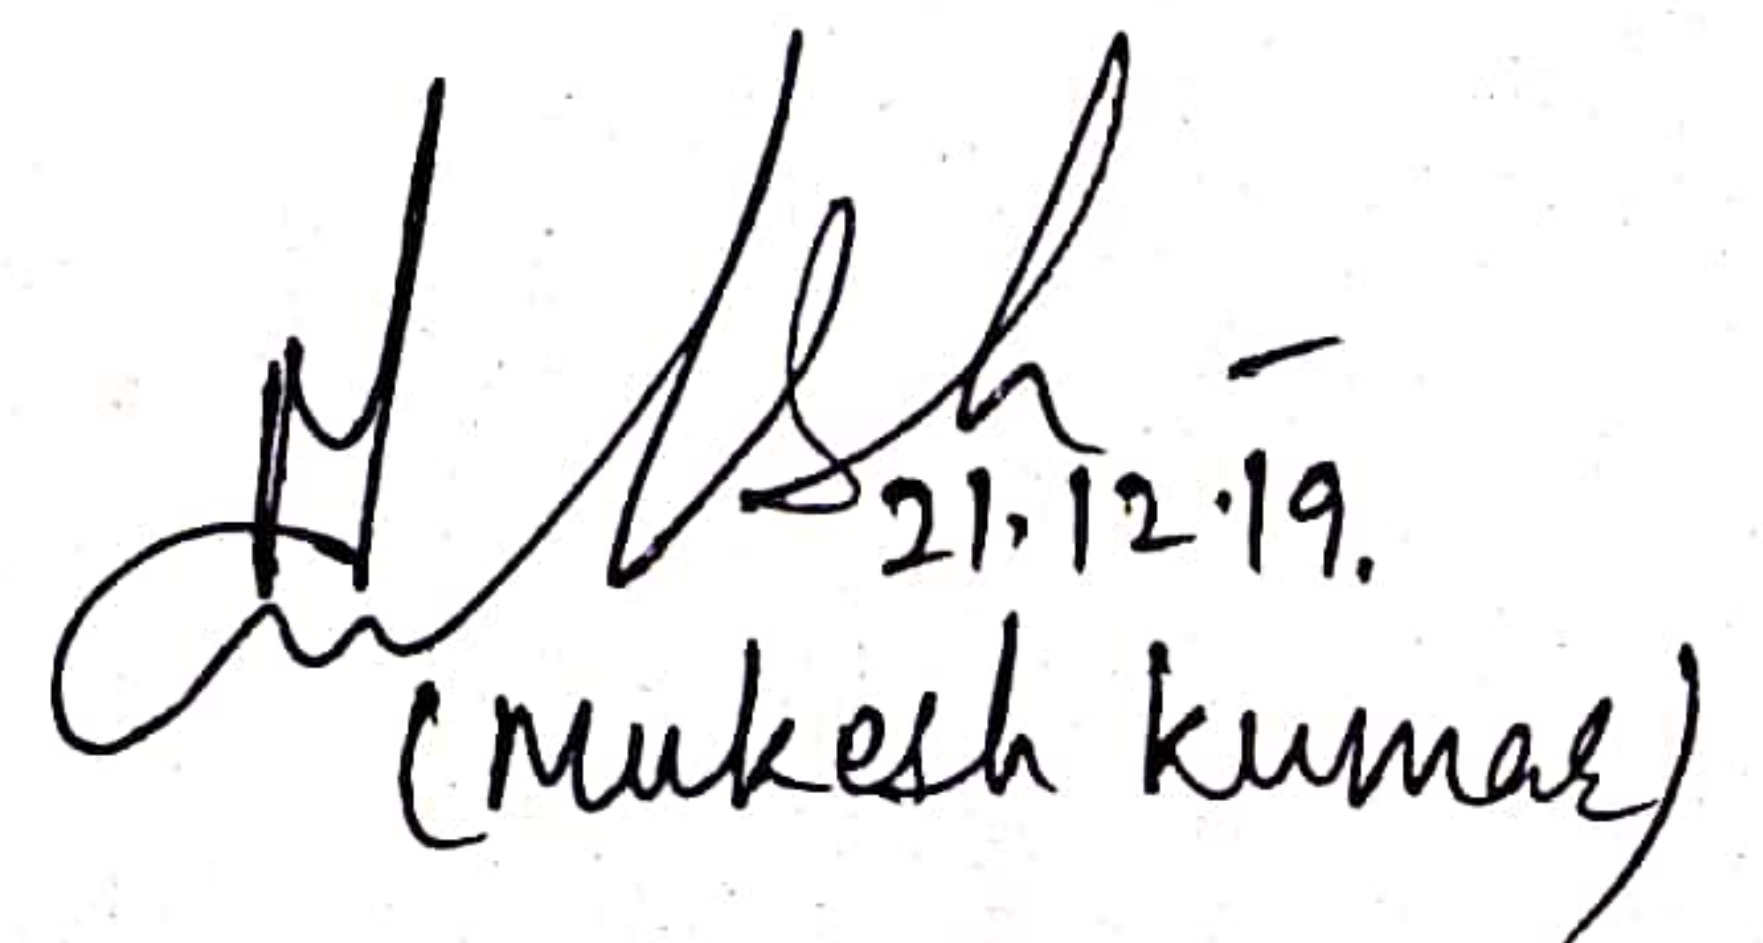 21.12.19.
(Mukesh Kumar)